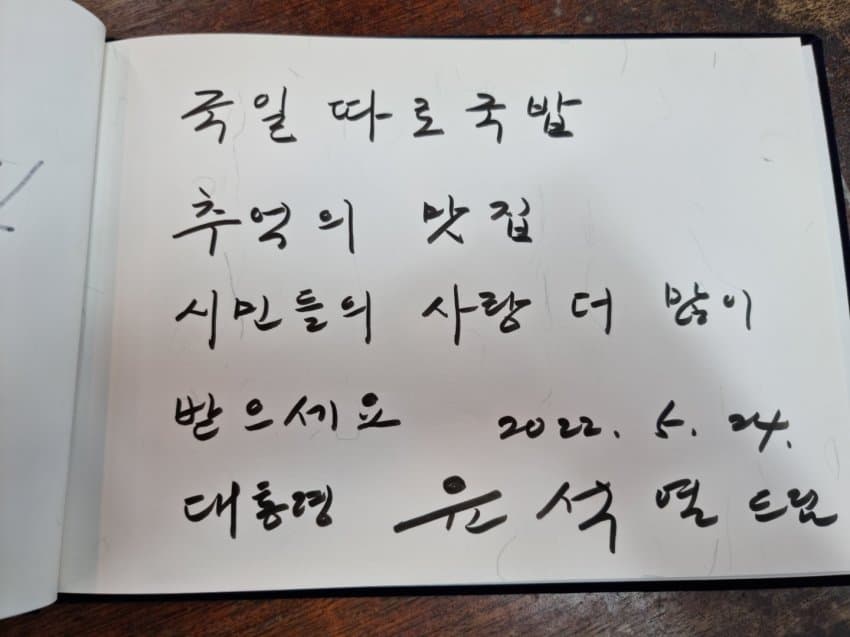 국일 따로국밥
추억의 맛집
시민들의 사랑 더 많이
받으세요 2022. 5. 24.
대통령 윤석열 드림